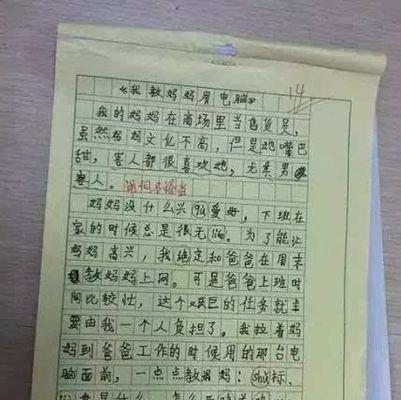 《我教妈妈用电脑》
14
我的妈妈在商场里当售货员，
虽然妈妈文化不高，但是她嘴巴
甜，客人都很喜欢她，尤其男
客人。用词不恰当
妈妈没什么兴(qù)爱好，下班在
家的时候总是很无liáo。为了能让
妈妈高兴，我决定和爸爸在周末
教妈妈上网。可是爸爸上班时
间比较忙，这个艰巨的任务就主
要由我一个人负担了。我拉着妈
妈到爸爸工作的时候用的那台电
脑面前，一点点教妈妈：(shǔ)标、